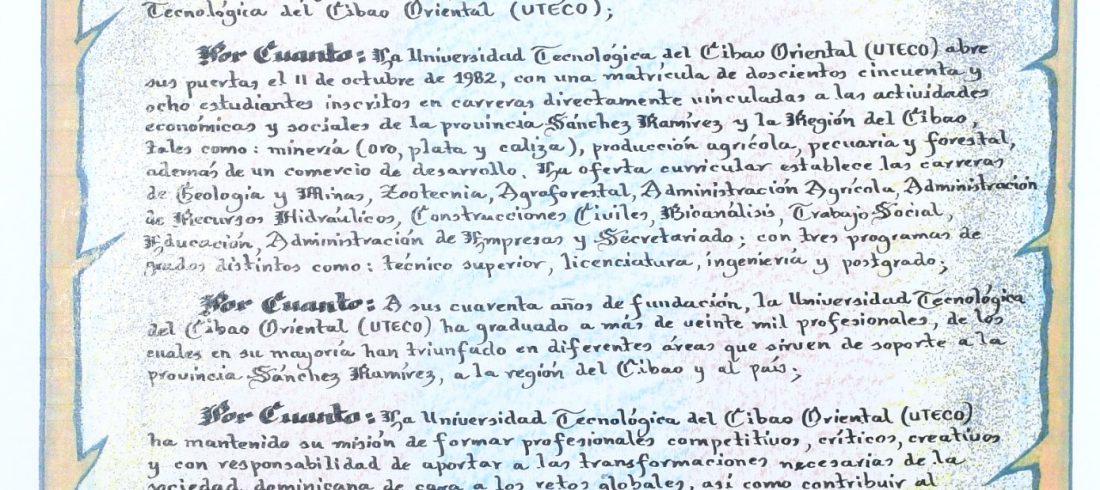 Tecnológica del Cibao Oriental (UTECO);
Por Cuanto: La Universidad Tecnológica del Cibao Oriental (UTECO) abre
sus puertas el 11 de octubre de 1982, con una matrícula de doscientos cincuenta y
ocho estudiantes inscritos en carreras directamente vinculadas a las actividades
económicas y sociales de la provincia Sánchez Ramírez y la Región del Cibao,
tales como: minería (oro, plata y caliza), producción agrícola, pecuaria y forestal,
además de un comercio de desarrollo. La oferta curricular establece las carreras
de Geología y Minas, Zootecnia, Agraforestal, Administración Agrícola, Administración
de Recursos Hidraúlicos, Construcciones Civiles, Bioanálisis, Trabajo Social,
Educación, Administración de Empresas y Secretariado; con tres programas de
grados distintos como: técnico superior, licenciatura, ingeniería y postgrado;
Por Cuanto: A sus cuarenta años de fundación, la Universidad Tecnológica
del Cibao Oriental (UTECO) ha graduado a más de veinte mil profesionales, de los
cuales en su mayoría han triunfado en diferentes áreas que sirven de soporte a la
provincia Sánchez Ramírez, a la región del Cibao y al país;
Por Cuanto: La Universidad Tecnológica del Cibao Oriental (UTECO)
ha mantenido su misión de formar profesionales competitivos, críticos, creativos
y con responsabilidad de aportar a las transformaciones necesarias de la
sociedad dominicana de cara a los retos globales, así como contribuir al